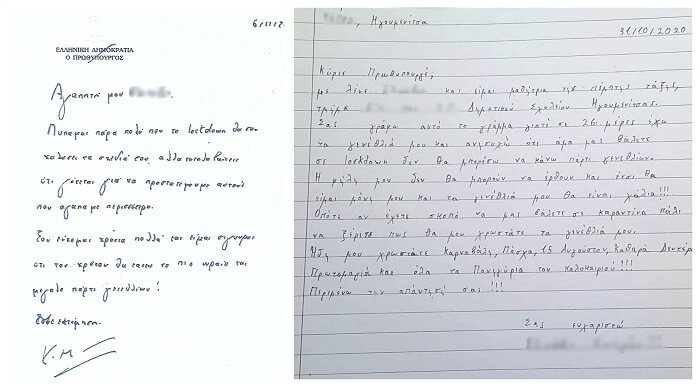 6/11/2
ΕΛΛΗΝΙΚΗ ΔΗΜΟΚΡΑΤΙΑ
Ο ΠΡΩΘΥΠΟΥΡΓΟΣ
Αγαπητή μου
Λυπαμαι πάρα πολύ που το lockdown θα σου
χαλάσει τα σχέδιά σου, αλλά καταλαβαίνεις
ότι γίνεται για να προστατεψουμε αυτούς
που αγαπάμε περισσότερο.
Σου εύχομαι χρόνια πολλά και είμαι σίγουρος
ότι του χρόνου θα κάνεις το πιο ωραίο και
μεγάλο πάρτι γενεθλίων!
Με εκτίμηση,
Κ.Μ
, Ηγουμενίτσα
31/10/2020
Κύριε Πρωθυπουργέ,
με λένε και είμαι μαθήτρια της πέμπτης τάξης,
τμήμα Δημοτικού Σχολείου Ηγουμενίτσας.
Σας γράφω αυτό το γράμμα γιατί σε 26 μέρες έχω
τα γενέθλιά μου και ανησυχώ ότι αμα μας βάλετε
σε lockdown δεν θα μπορέσω να κάνω πάρτι γενεθλίων.
Η φίλες μου δεν θα μπορούν να έρθουν και έτσι θα
είμαι μόνη μου και τα γενέθλιά μου θα είναι χάλια!!!
Οπότε αν έχετε σκοπό να μας βάλετε σε καραντίνα πάλι
να ξέρετε πως θα μου χρωστάτε τα γενέθλιά μου.
Ήδη μου χρωστάτε Καρναβάλη, Πάσχα, 15 Αυγούστου, Καθαρά Δευτέρα
Πρωτομαγιά και όλα τα Πανηγύρια του καλοκαιριού!!!
Περιμένω την απάντησή σας!!!
Σας ευχαριστώ